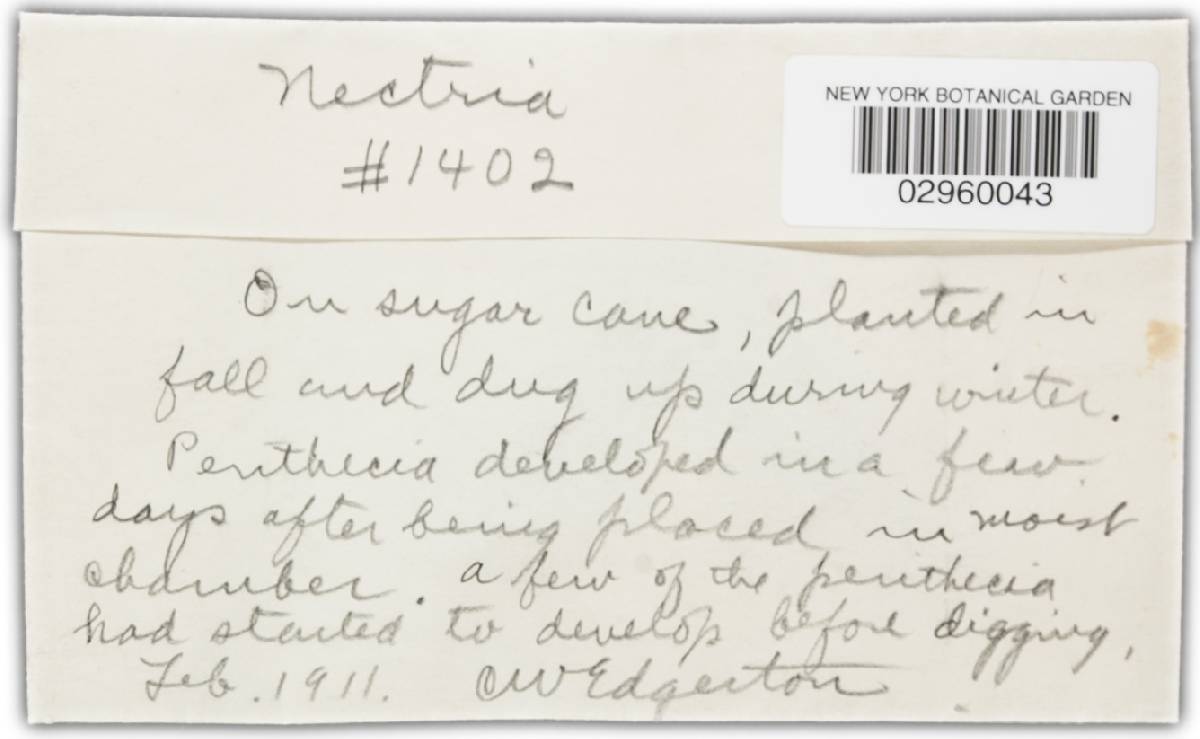 Nectria
#1402
NEW YORK BOTANICAL GARDEN
02960043
On sugar cane, planted in
fall and dug up during winter.
Perithecia developed in a few
days after being placed in moist
chamber. a few of the perithecia
had started to develop before digging,
Feb. 1911. CWEdgerton